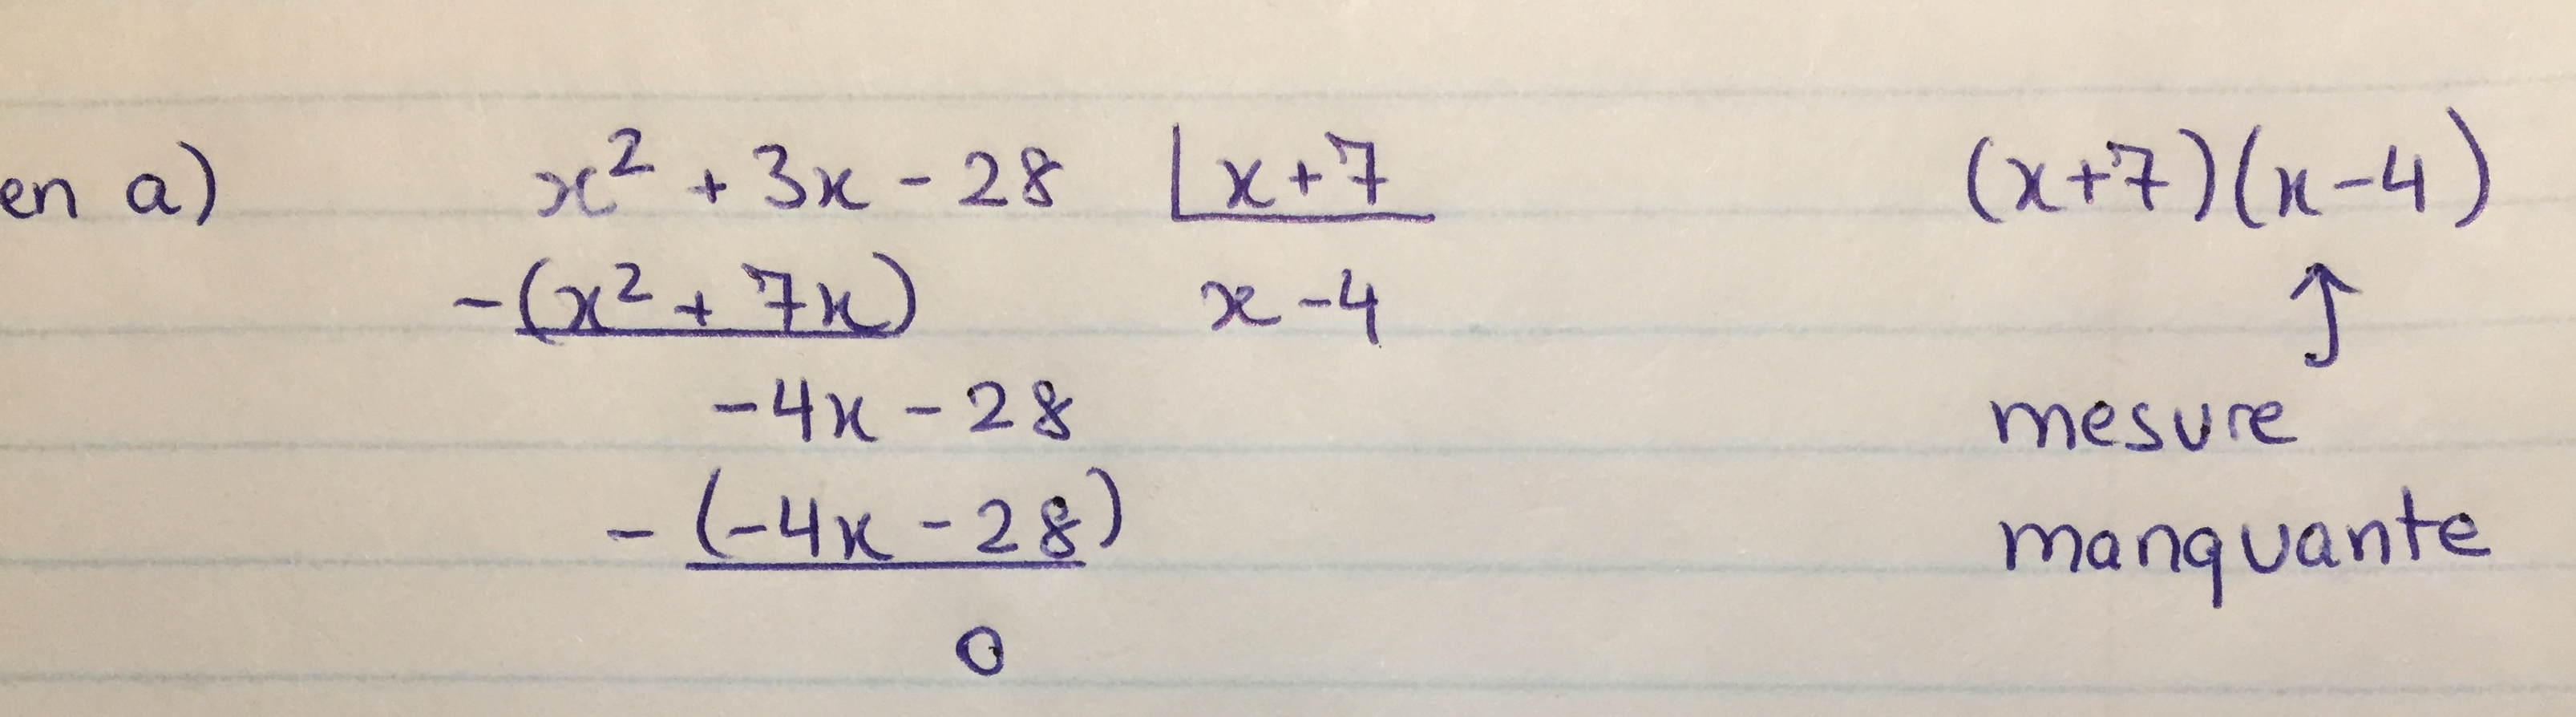 en a) x² + 3x - 28 | x+7 (x+7)(x-4)
-(x² + 7x) x - 4 ↑
-4x - 28 mesure
- (-4x - 28) manquante
0